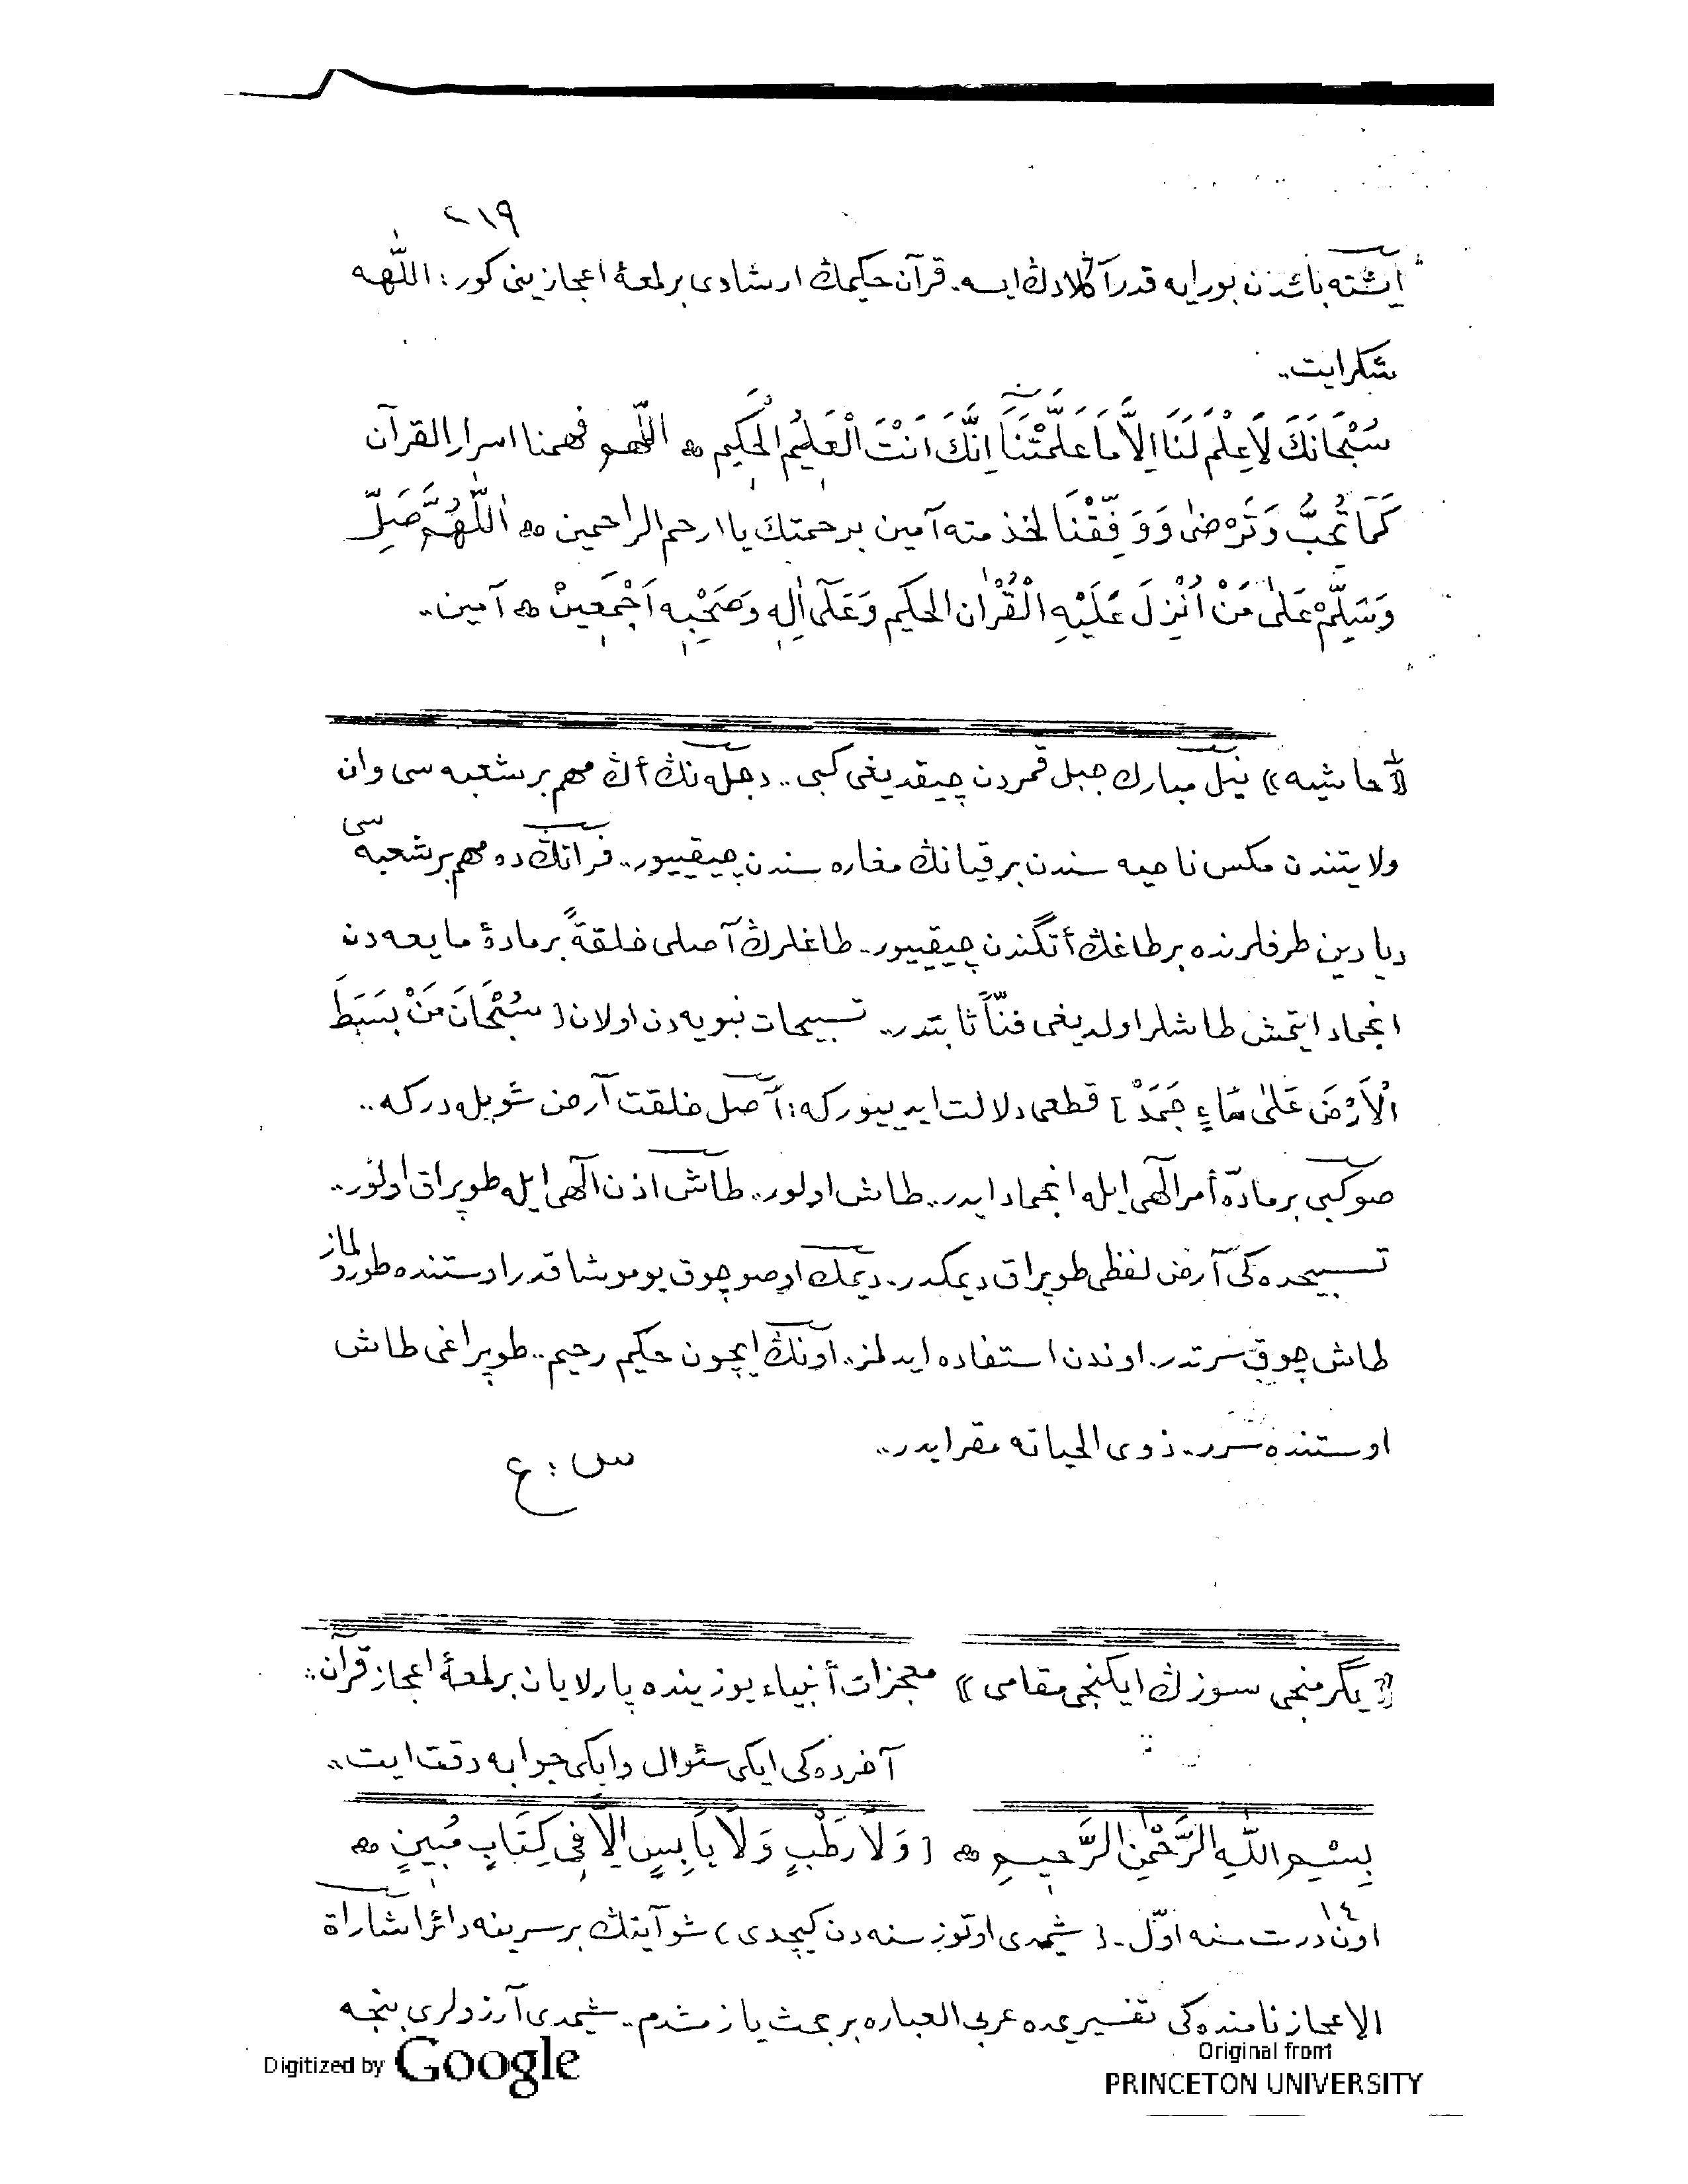 ٢١٩
ایشته باشدن بورایه قدر آڭلادڭ ایسه. قرآن حكیمڭ ارشادی بر لمعهٔ اعجازینی كور: اللّٰهه
شكر ایت..
سُبْحَانَكَ لَا عِلْمَ لَنَا اِلَّا مَا عَلَّمْتَنَا اِنَّكَ اَنْتَ الْعَلِیمُ الْحَكِیم ۞ اللّٰهم فهمنا اسرار القرآن
كَمَا تُحِبُّ وَتَرْضٰی وَوَفِّقْنَا لخذمته آمین برحمتك یا ارحم الراحمین ۞ اَللّٰهُمَّ صَلِّ
وَسَلِّمْ عَلٰی مَنْ اُنْزِلَ عَلَیْهِ الْقُرْاٰن الحكیم وَعَلٰٓی اٰلِهِ وَصَحْبِهِ اَجْمَعِینْ ۞ آمین..
«حاشیه» نیل مبارك جبل قمردن چیقدیغی كبی.. دجله‌نڭ أڭ مهم بر شعبه‌سی وان
ولایتندن مكس ناحیه‌سندن بر قیانڭ مغاره‌سندن چیقییور.. فراتڭ ده مهم بر شعبه‌سی
دیادین طرفلرنده بر طاغڭ أتگندن چیقییور.. طاغلرڭ آصلی خلقةً بر مادهٔ مایعه‌دن
انجماد ایتمش طاشلر اولدیغی فنّاً ثابتدر.. تسبیحات نبویه‌دن اولان [سُبْحَانَ مَنْ بَسَطَ
الْاَرْضَ عَلٰی مَٓاءٍ جَمَدْ] قطعی دلالت ایدییوركه: آصل خلقت آرض شویله‌دركه..
صو كبی بر مادّه أمر الٓهی ایله انجماد ایدر.. طاش اولور.. طاش اذن الٓهی ایله طوپراق اولور..
تسبیحده‌كی آرض لفظی طوپراق دیمكدر.. دیمك او صو چوق یوموشاقدر اوستنده طورولماز
طاش چوق سرتدر. اوندن استفاده ایدلمز.. اونڭ ایچون حكیم رحیم.. طوپراغی طاش
اوستنده سرر.. ذوی الحیاته مقر ایدر..
س : ع
«یگرمنجی سوزڭ ایكنجی مقامی» معجزات أنبیاء یوزینده پارلایان بر لمعهٔ اعجاز قرآن..
آخرده‌كی ایكی سئوال و ایكی جوابه دقت ایت..
بِسْمِ اللّٰهِ الرَّحْمٰنِ الرَّحِیمِ ۞ [وَلَا رَطْبٍ وَلَا یَابِسٍ اِلَّا فِی كِتَابٍ مُبِینٍ ۞
١٤
اون درت سنه اوّل. (شیمدی اوتوز سنه‌دن كیچدی) شو آیتڭ بر سرینه دائر اشاراة
الاعجاز نامنده‌كی تفسیریمده عربی العباره بر بحث یازمشدم.. شیمدی آرزولری بنجه
Digitized by Google
Original from
PRINCETON UNIVERSITY